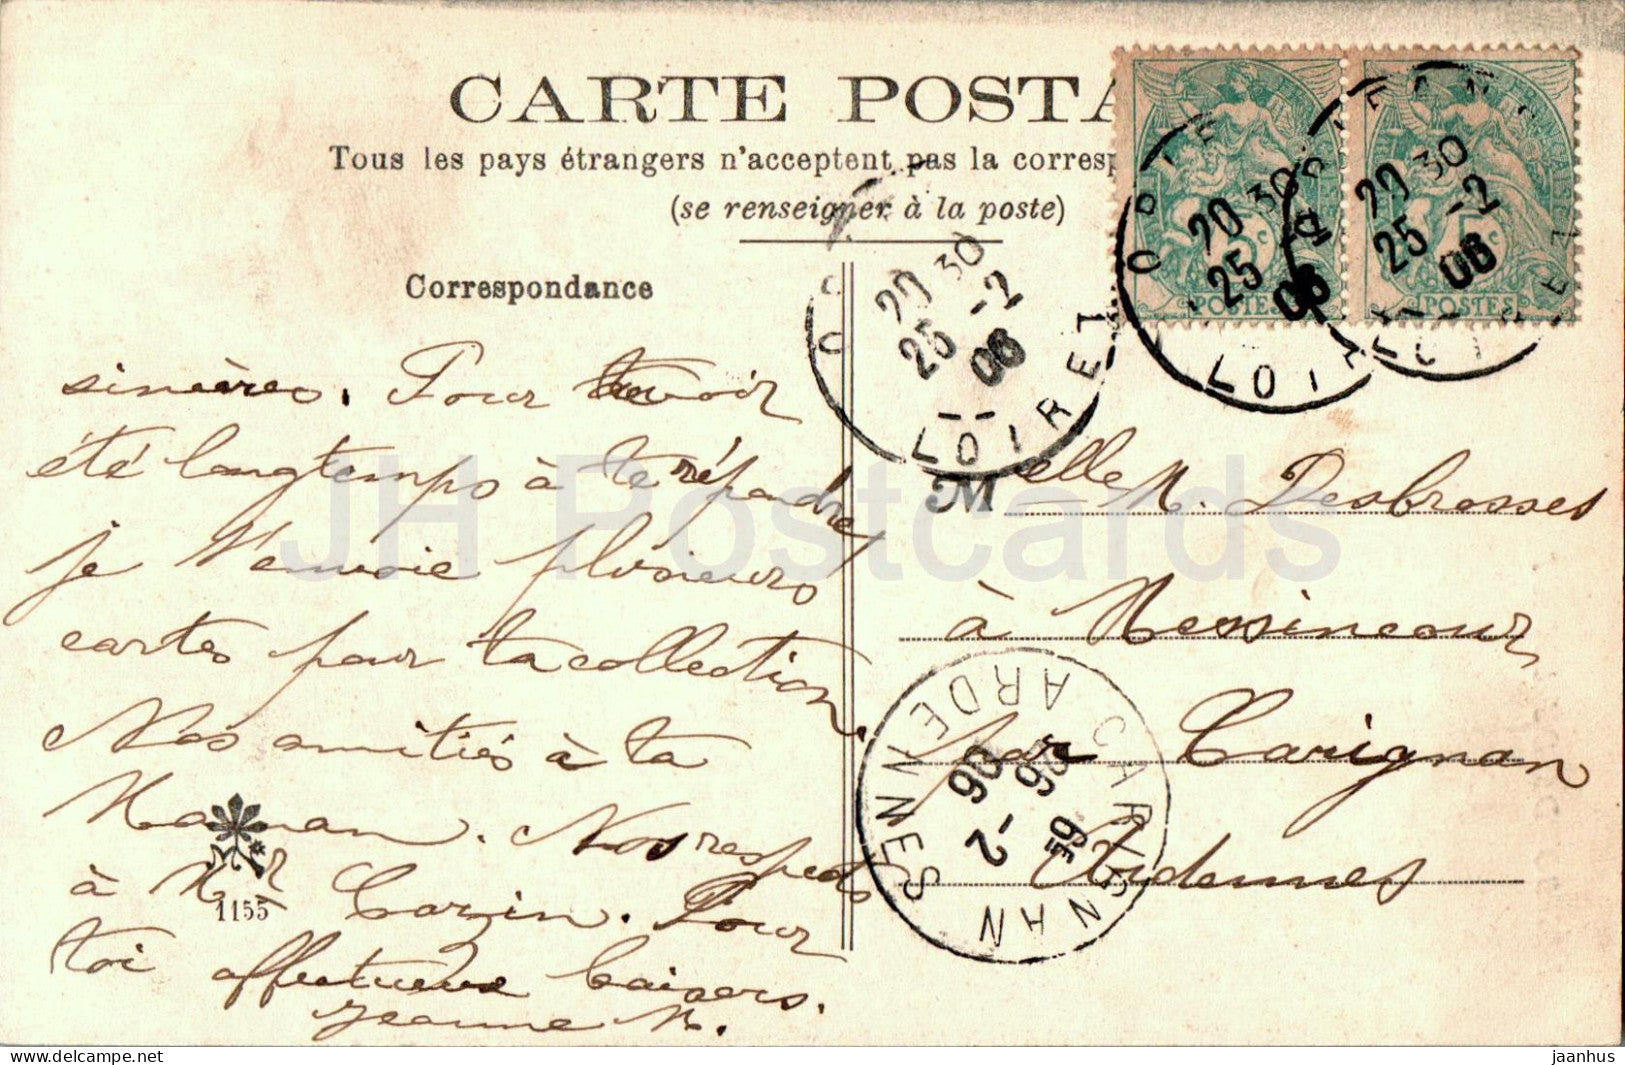 CARTE POSTA
Tous les pays étrangers n'acceptent pas la corresp
(se renseigner à la poste)
Correspondance
sincères. Pour avoir
été longtemps à te répondre
je t'envoie plusieurs
cartes pour ta collection.
Nos amitiés à ta
Maman. Nos respects
à Mr Cazin. Pour
toi affectueux baisers.
Jeanne M.
1155
Melle M. Desbrosses
à Messincour
par Carignan
Ardennes
20 30
25 -2
06
LOIRET
POSTES
5c
20 30
25 -2
06
LOIRE
POSTES
5c
20 30
25 -2
06
LOIRET
CARIGNAN
ARDENNES
26 -2
06
JH Postcards
delcampe.net
jaanhus